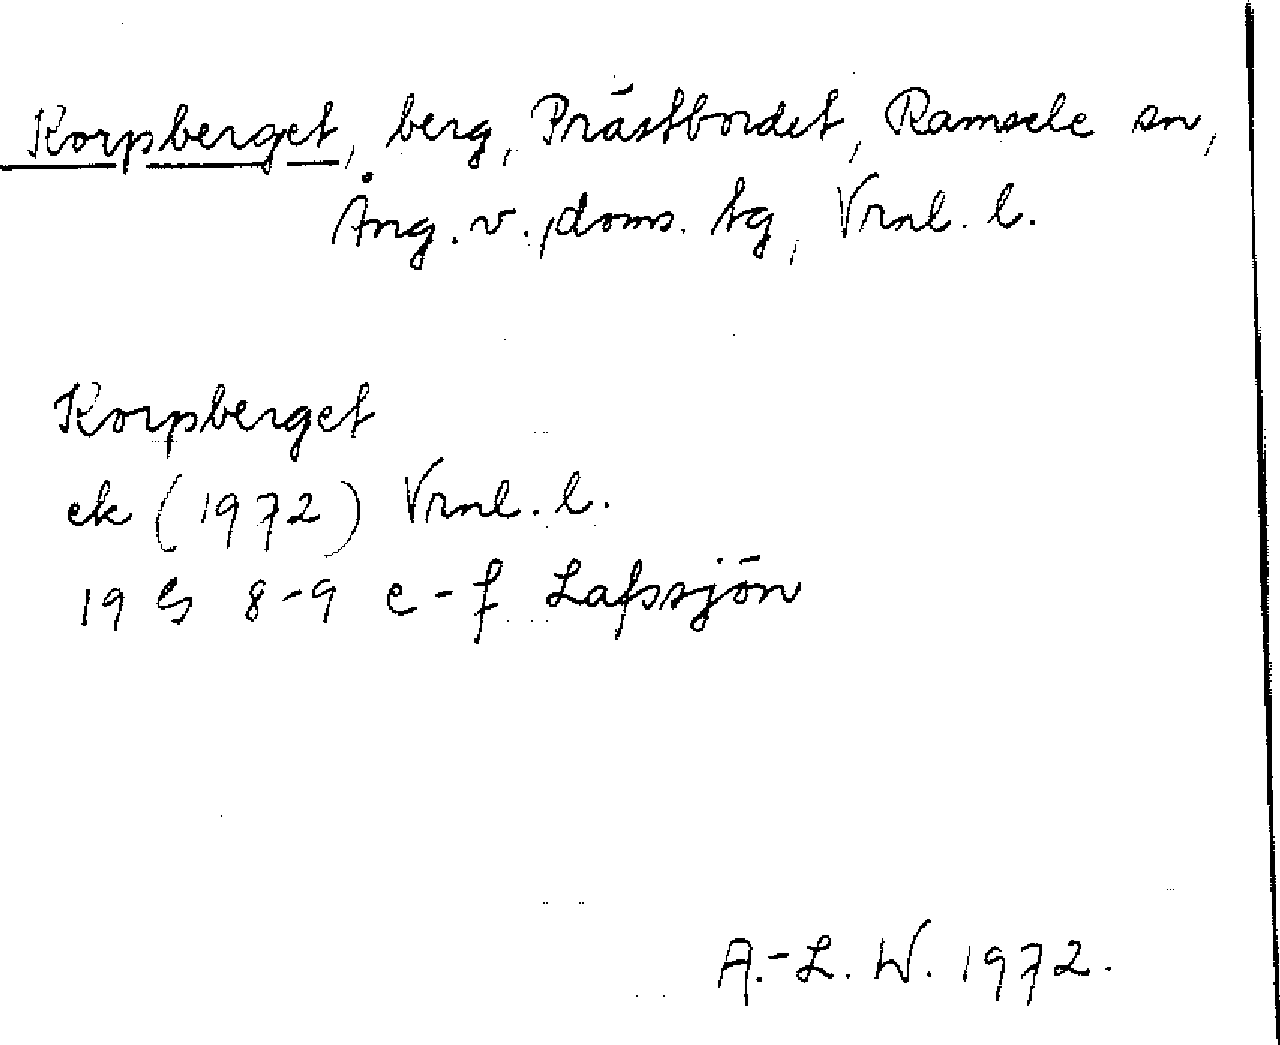 Korpberget, berg, Prästbordet, Ramsele sn,
Ång. v., doms. tg, Vrnl. l.
Korpberget
ek (1972) Vrnl. l.
19 G 8-9 e-f Lafssjön
A.-L. W. 1972.